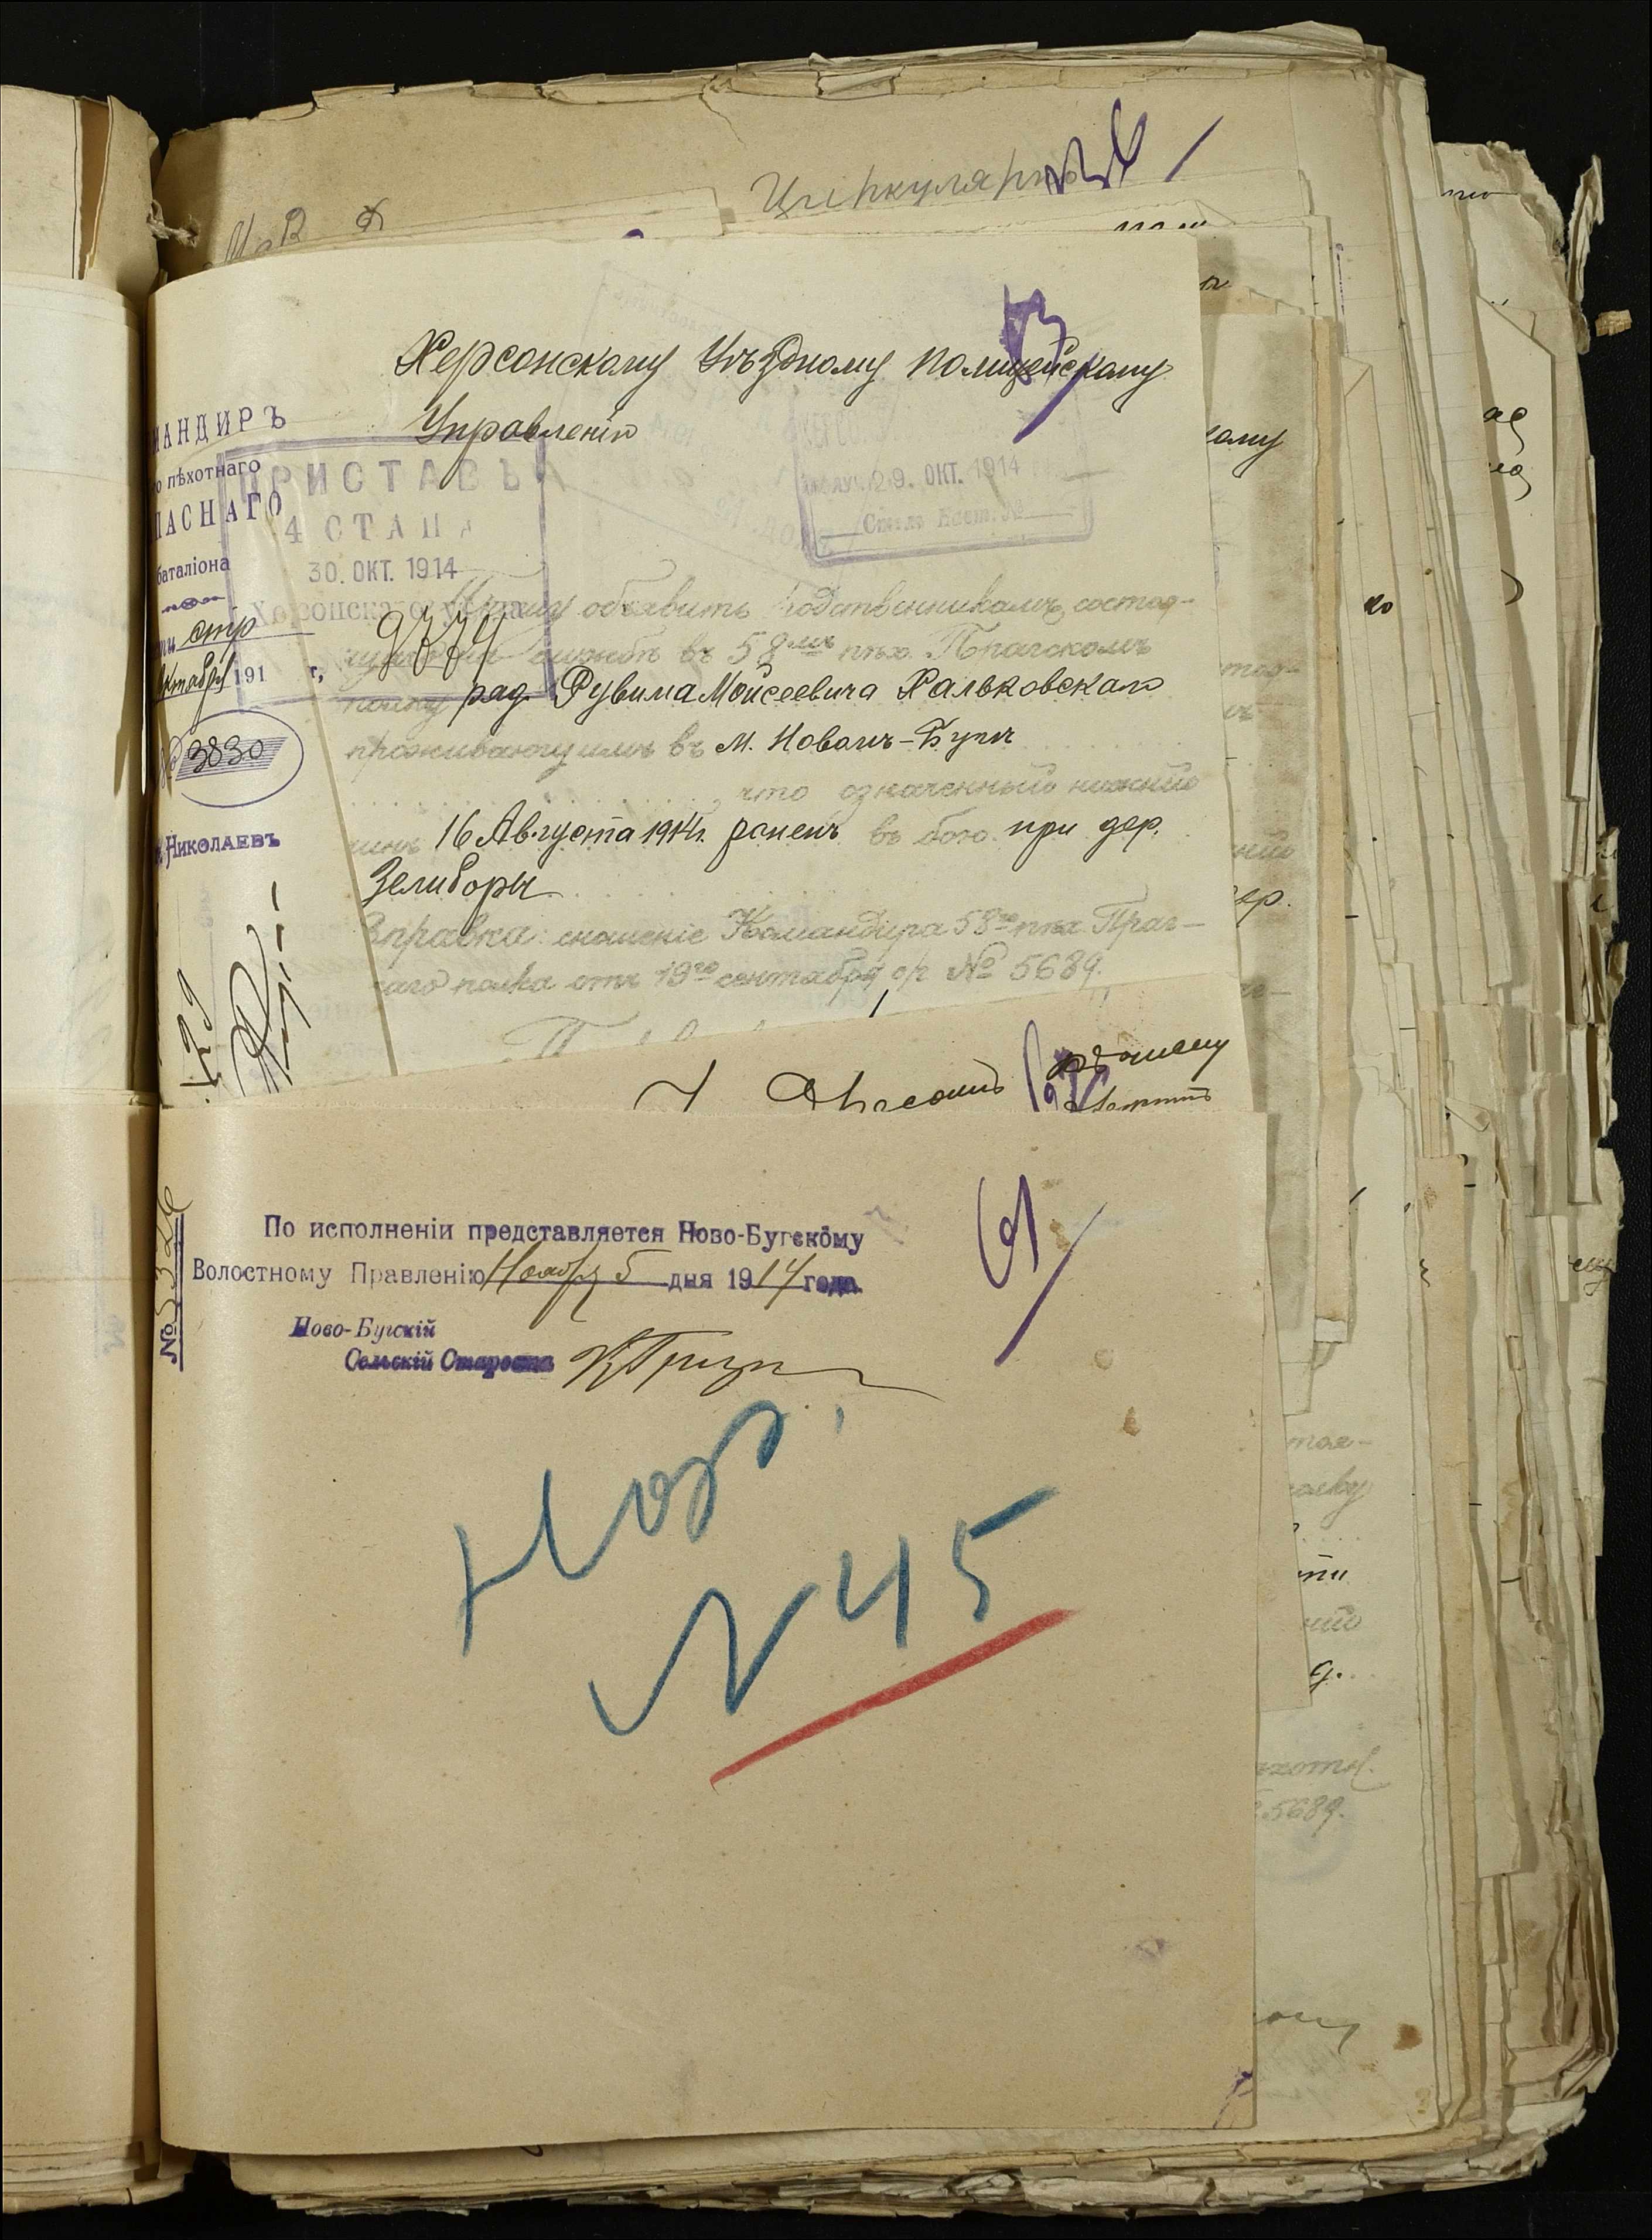 Циркулярно
М В Д
Херсонскому Уѣздному Полицейскому
Управленію
МАНДИРЪ
о пѣхотнаго
ПАСНАГО
баталіона
ти стр
ктября 191 г,
№ 3830
НИКОЛАЕВЪ
ПРИСТАВЪ
4 СТАНА
30. ОКТ. 1914
Херсонскаго уѣзда
29. ОКТ. 1914
Прошу объявить родственникамъ, состоя-
службѣ въ 58мъ пѣх. Прагскомъ
полку ряд. Рувима Мойсеевича Хальковскаго
проживающимъ въ м. Новомъ-Бугѣ
, что означенный нижній
чинъ 16 Августа 1914 г. раненъ въ бою при дер.
Зелиборы
Справка: сношеніе Командира 58го пѣх. Праг-
каго полка отъ 19го сентября с/г № 5689.
61
По исполненіи представляется Ново-Бугскому
Волостному Правленію Ноября 5 дня 1914 года
Ново-Бугскій
Сельскій Староста
№
N 45
кому
ер.
ти
5689.